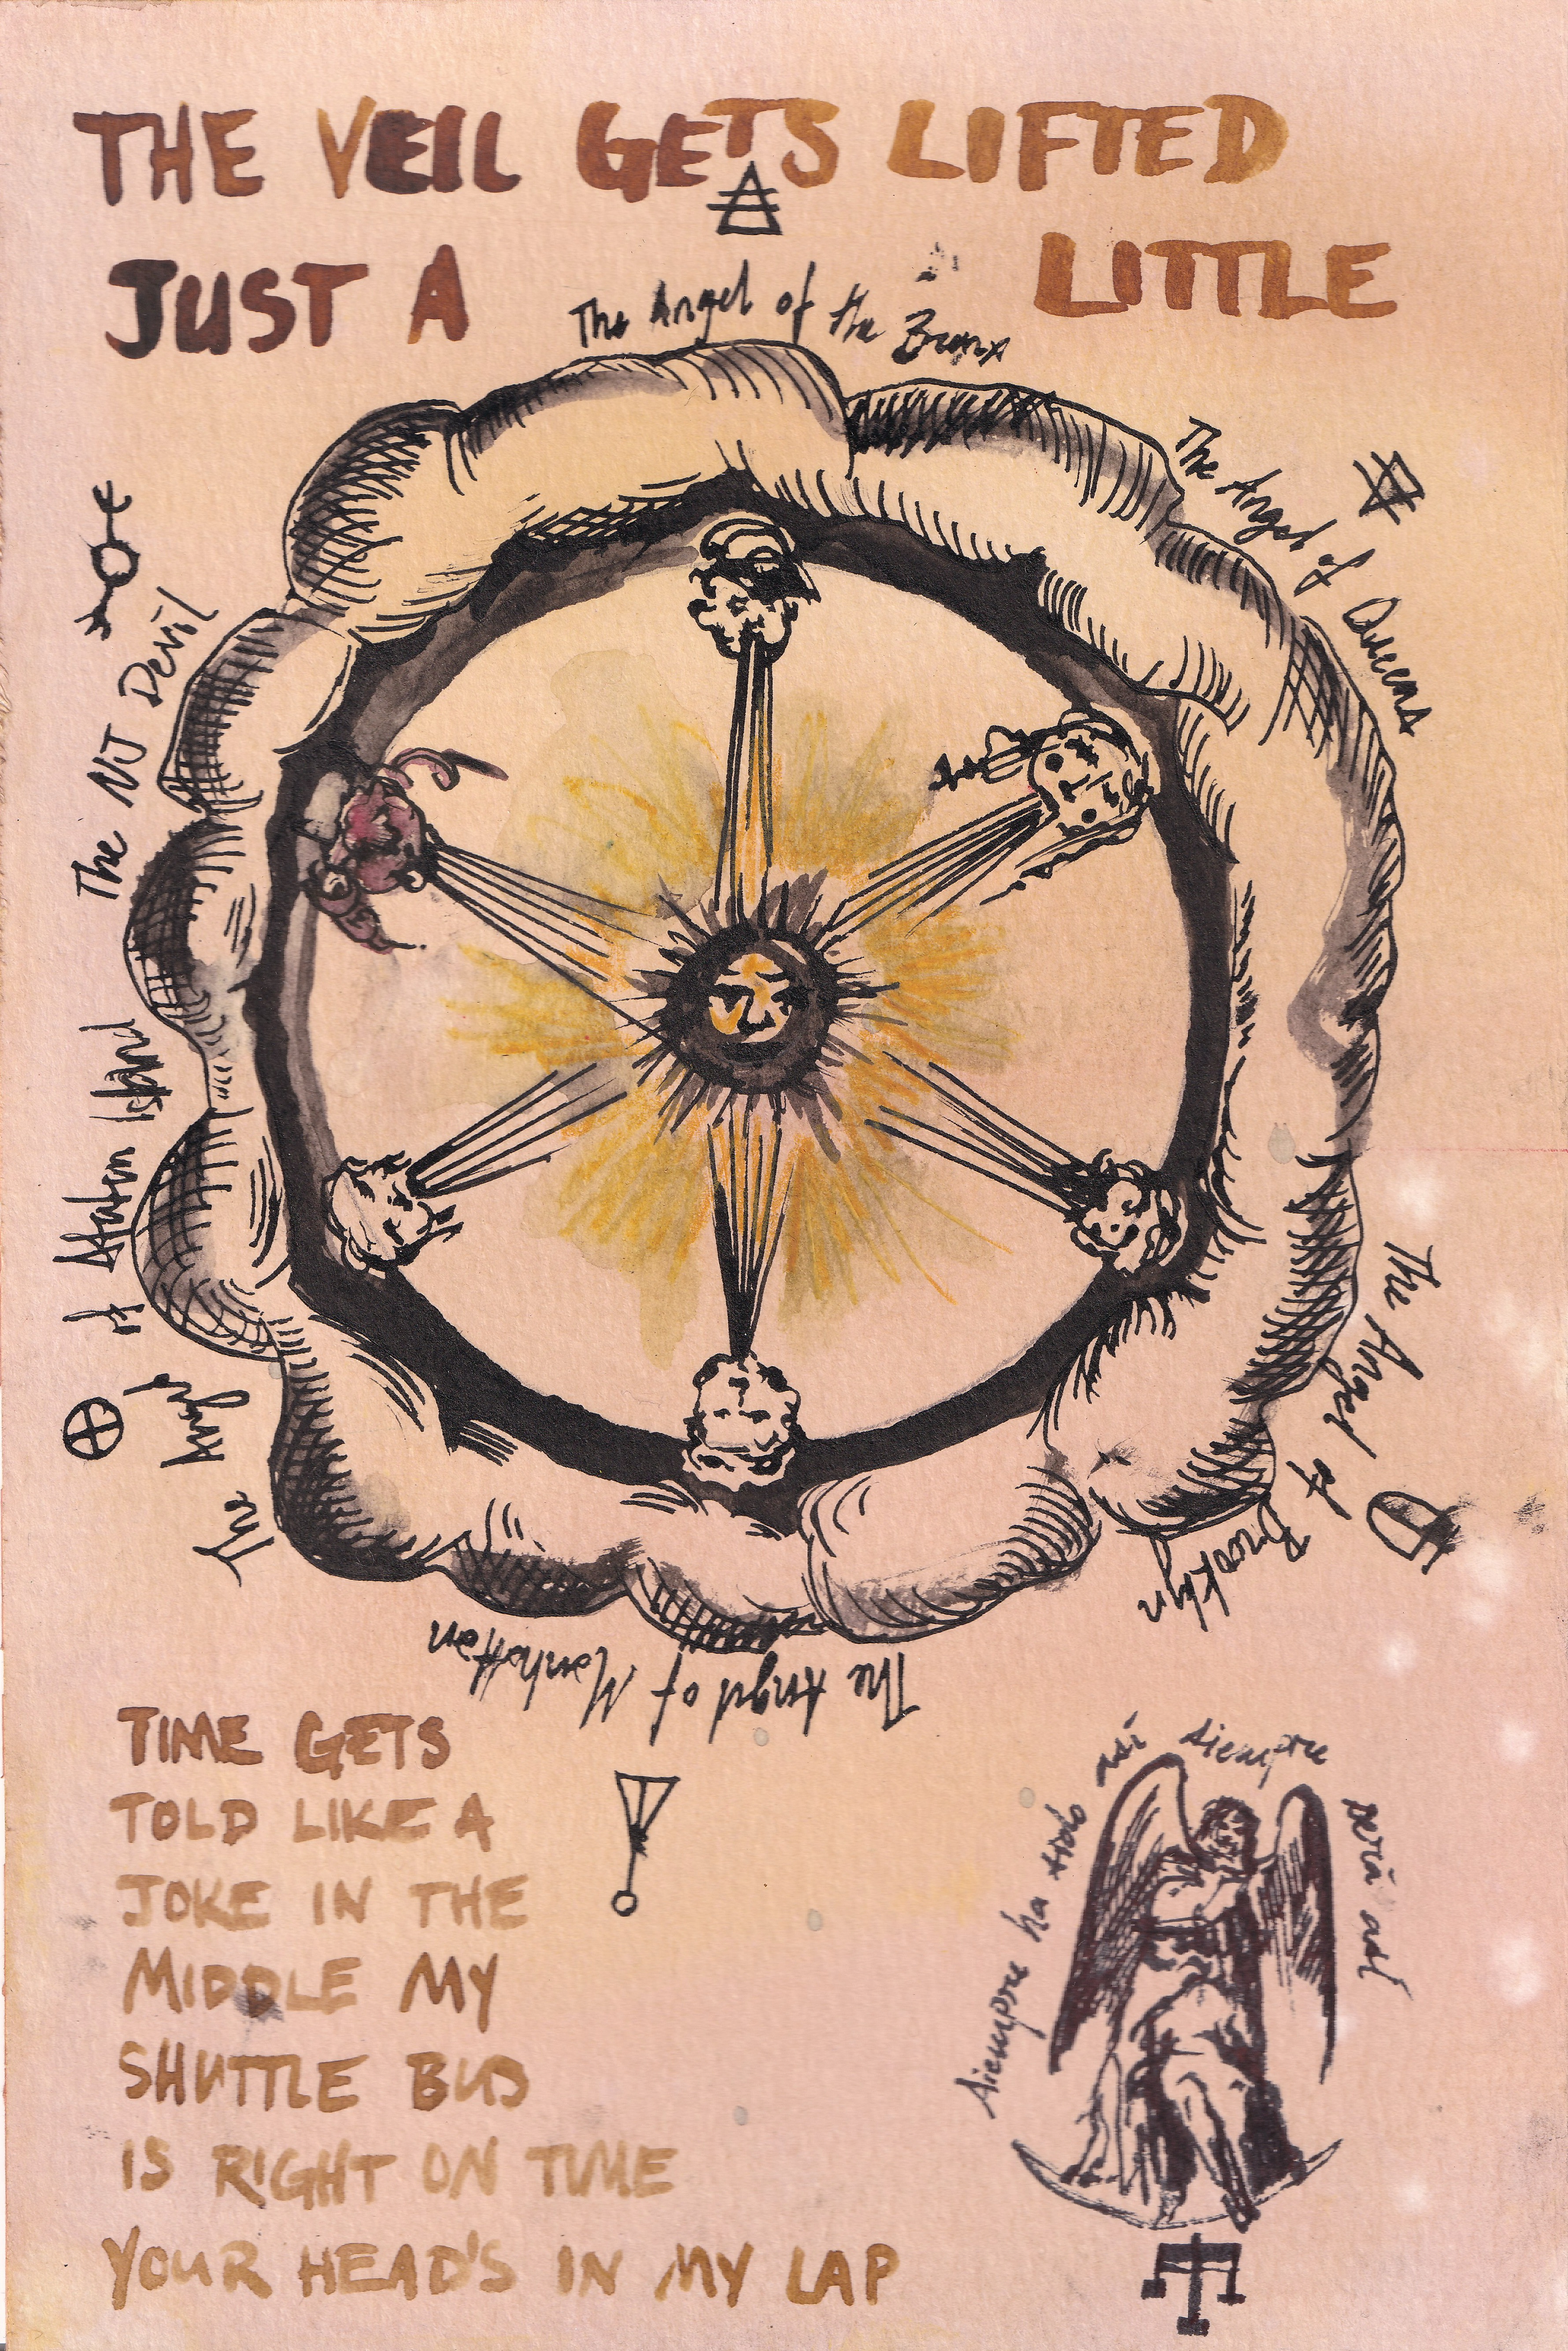 THE VEIL GETS LIFTED
JUST A LITTLE
The Angel of the Bronx
The Angel of Queens
The Angel of Brooklyn
The Angel of Manhattan
The Angel of Staten Island
The NJ Devil
TIME GETS
TOLD LIKE A
JOKE IN THE
MIDDLE MY
SHUTTLE BUS
IS RIGHT ON TIME
YOUR HEAD'S IN MY LAP
siempre ha sido así siempre será así